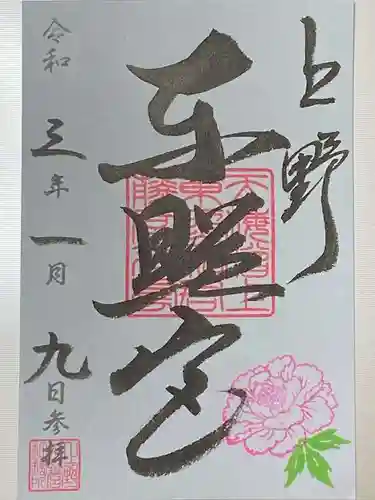 上野
東照宮
令和三年一月九日参拝